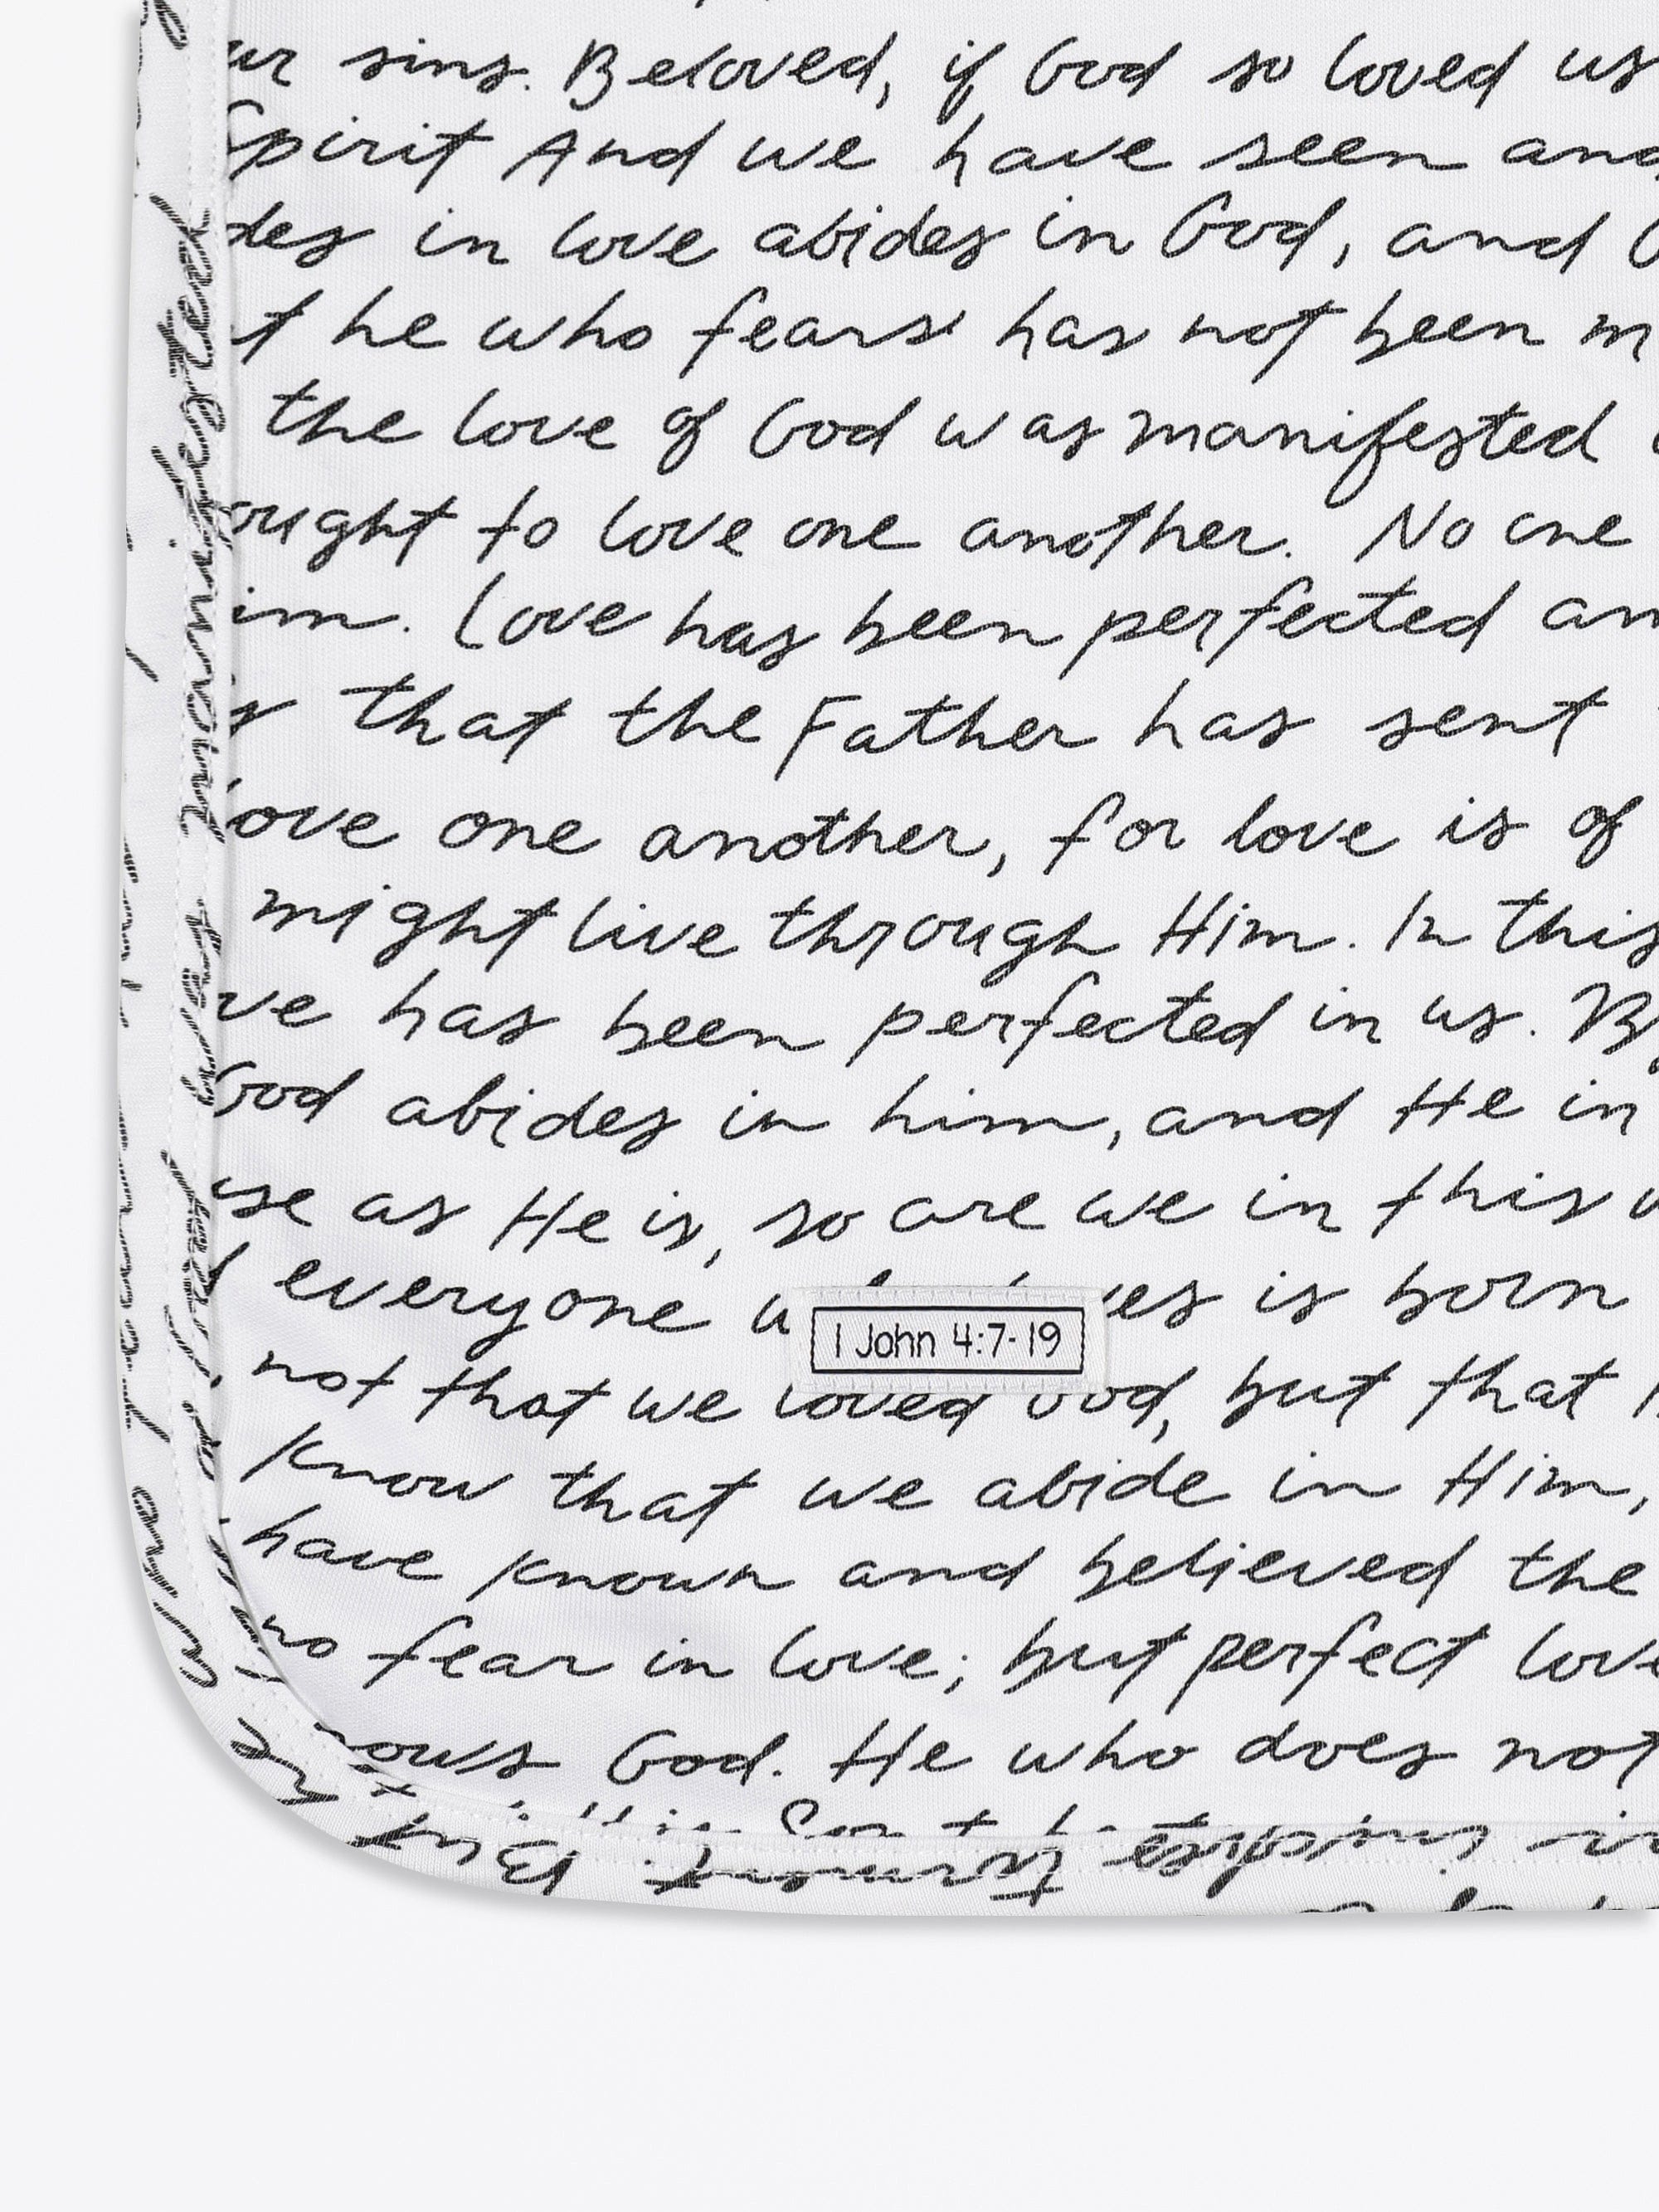 sins. Beloved, if God so loved us
Spirit And we have seen and
in love abides in God, and
he who fears has not been
the love of God was manifested
ought to love one another. No one
Love has been perfected
that the Father has sent
love one another, for love is of
might live through Him. In this
has been perfected in us. By
God abides in him, and He in
as He is, so are we in this
everyone is born
1 John 4:7-19
not that we loved God, but that
know that we abide in Him,
have known and believed the
no fear in love; but perfect love
God. He who does not
manifested
But